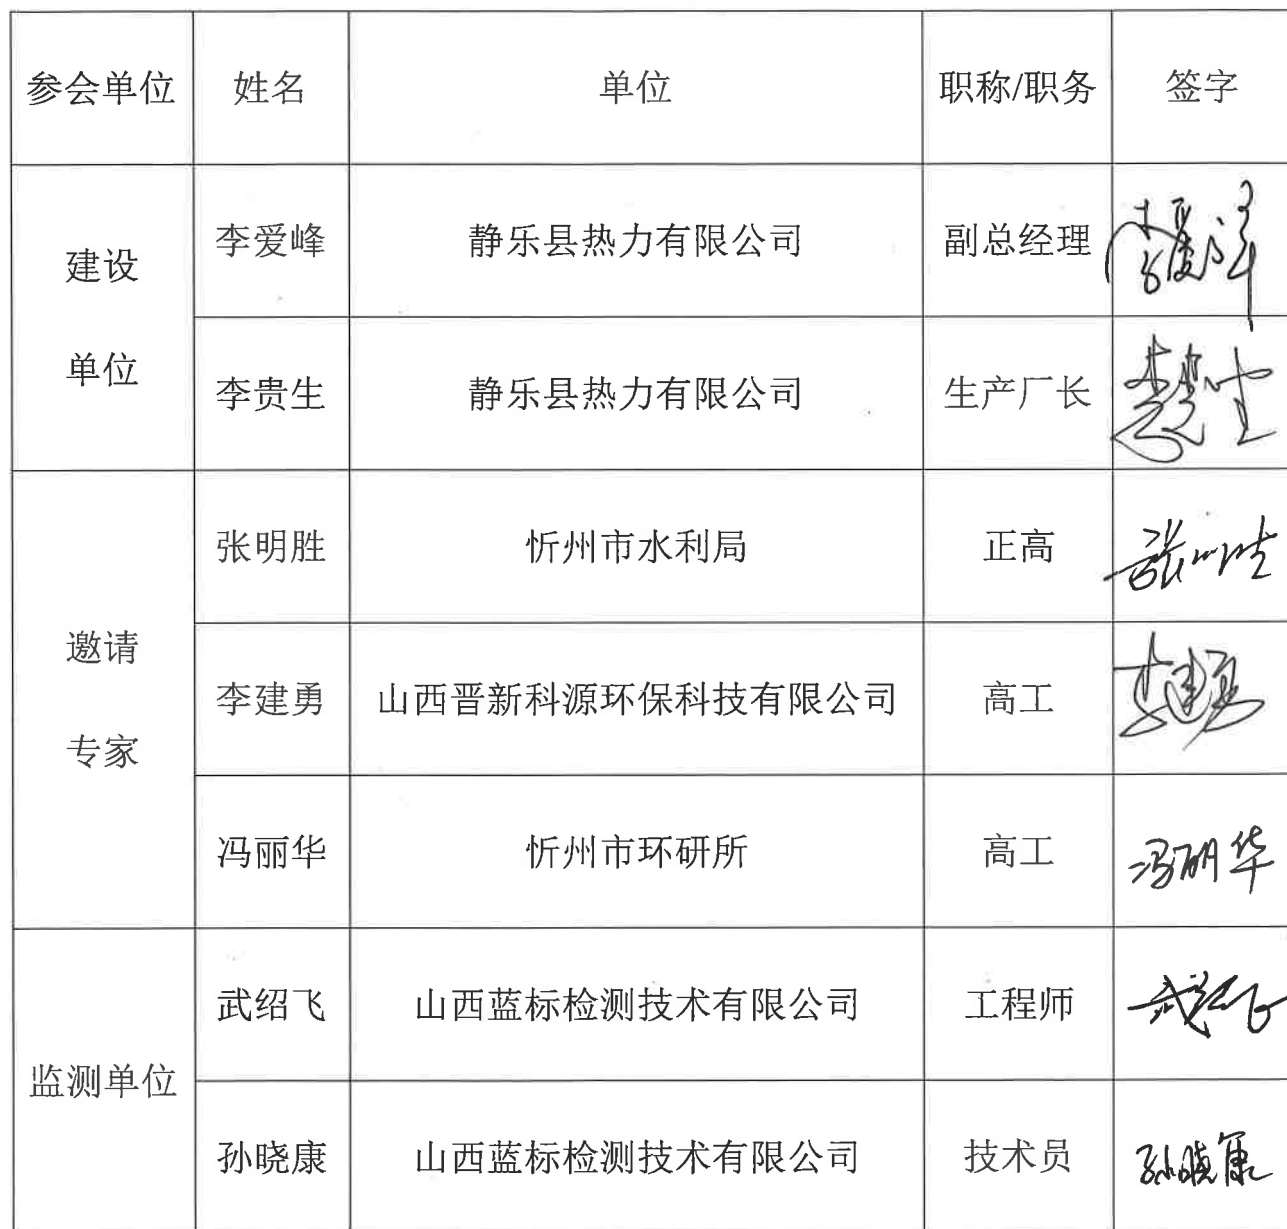 参会单位 姓名 单位 职称/职务 签字
建设
单位
李爱峰 静乐县热力有限公司 副总经理
李贵生 静乐县热力有限公司 生产厂长
邀请
专家
张明胜 忻州市水利局 正高
李建勇 山西晋新科源环保科技有限公司 高工 李建勇
冯丽华 忻州市环研所 高工 冯丽华
监测单位
武绍飞 山西蓝标检测技术有限公司 工程师
孙晓康 山西蓝标检测技术有限公司 技术员 孙晓康